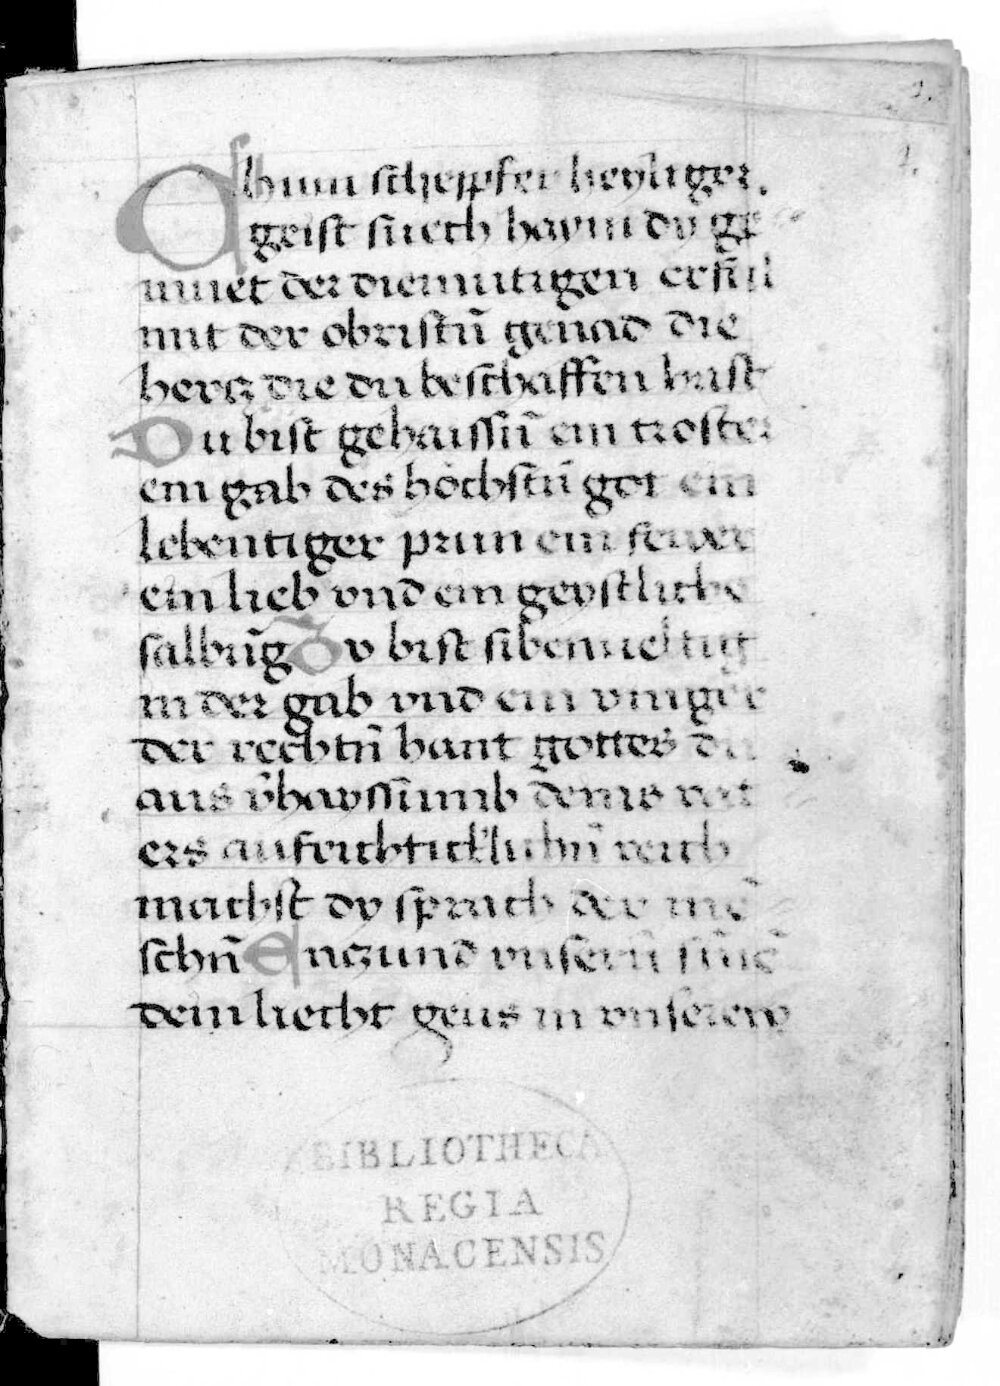 1.
1.
Chum schepfer heyliger.
geist suech haym dy ge
muet der diemutigen erfull
mit der obristn̄ genad die
hercz die du beschaffen hast
Du bist gehaissn̄ ein troster
ein gab des höchstn̄ got ein
lebentiger prun ein fewer
ein lieb vnd ein geystliche
salbūg Dv bist sibenueltig
in der gab vnd ein vinger
der rechtn̄ hant gottes du
aus v̄hayssn̄
ers reich
machst dy sprach der mē
schn̄ Enczund vnsern̄ sīnē
dein liecht geus in vnserew
BIBLIOTHECA
REGIA
MONACENSIS